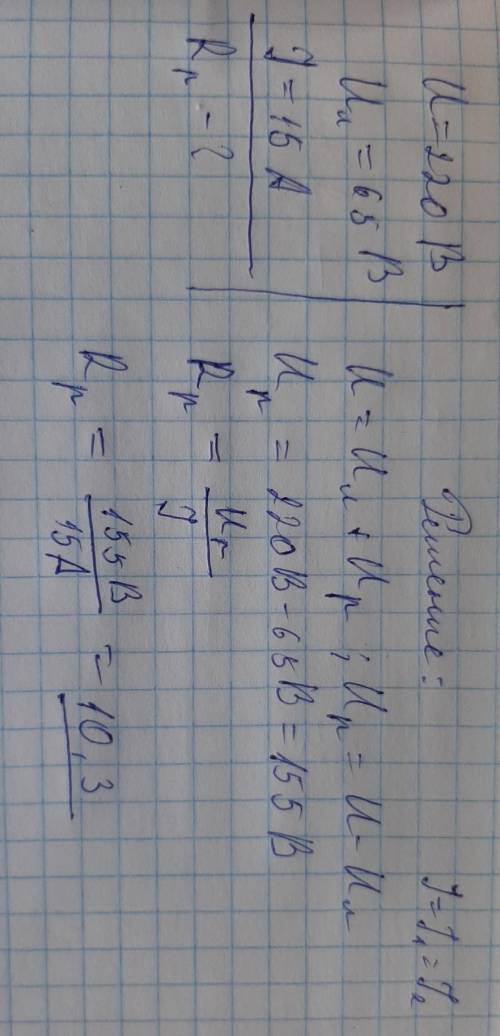 U = 220 В
Uл = 65 В
J = 15 А
Rр - ?
Решение:
J = J₁ = J₂
U = Uл + Uр ; Uр = U - Uл
Uр = 220 В - 65 В = 155 В
Rр = Uр/J
Rр = 155 В/15 А = 10,3